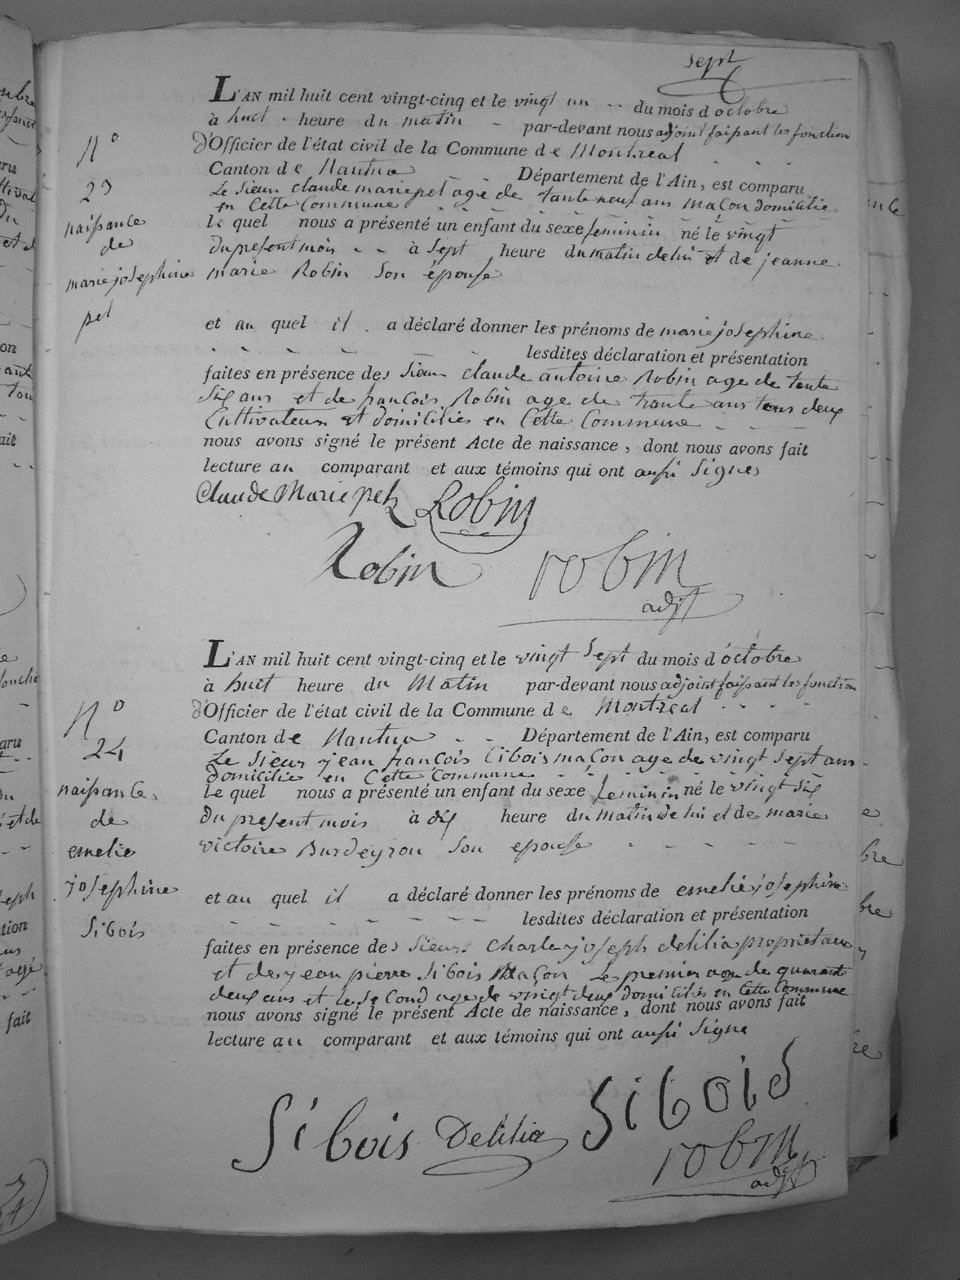 sept
L'AN mil huit cent vingt-cinq et le vingt un -- du mois d octobre
à huit - heure du matin - par-devant nous adjoint faisant les fonction
d'Officier de l'état civil de la Commune de Montreal
Canton de Nantua Département de l'Ain, est comparu
Le sieur claude marie pet age de tante neuf ans macon domicilie
en Cette Commune
le quel nous a présenté un enfant du sexe feminin né le vingt
du present mois -- à sept heure du matin de lui et de jeanne
marie Robin son épouse
et au quel il a déclaré donner les prénoms de marie josephine
lesdites déclaration et présentation
faites en présence des sieur claude antoine Robin age de tente
six ans et de francois Robin age de trante ans tous deux
Cultivateurs et domiciliés en Cette Commune
nous avons signé le présent Acte de naissance, dont nous avons fait
lecture au comparant et aux témoins qui ont aussi signes
Claude Marie pet Robin
Robin robin
adjt
N°
23
naissance
de
marie josephine
pet
L'AN mil huit cent vingt-cinq et le vingt sept du mois d'octobre
à huit heure du Matin par-devant nous adjoint faisant les fonction
d'Officier de l'état civil de la Commune de Montréal
Canton de Nantua -- Département de l'Ain, est comparu
Le sieur jean francois Sibois macon age de vingt sept ans
domicilie en Cette Commune
le quel nous a présenté un enfant du sexe feminin né le vingt six
du present mois à dix heure du matin de lui et de marie
victoire Burdeyron son epouse
et au quel il a déclaré donner les prénoms de emelie josephine
lesdites déclaration et présentation
faites en présence des sieurs Charle joseph delilia propriétaire
et de jean pierre Sibois Maçon Le premier age de quarant
deux ans et le second age de vingt deux domiciliés en Cette Commune
nous avons signé le présent Acte de naissance, dont nous avons fait
lecture au comparant et aux témoins qui ont aussi signe
Sibois Delilia Sibois
robin
adjt
N°
24
naissance
de
emelie
josephine
Sibois